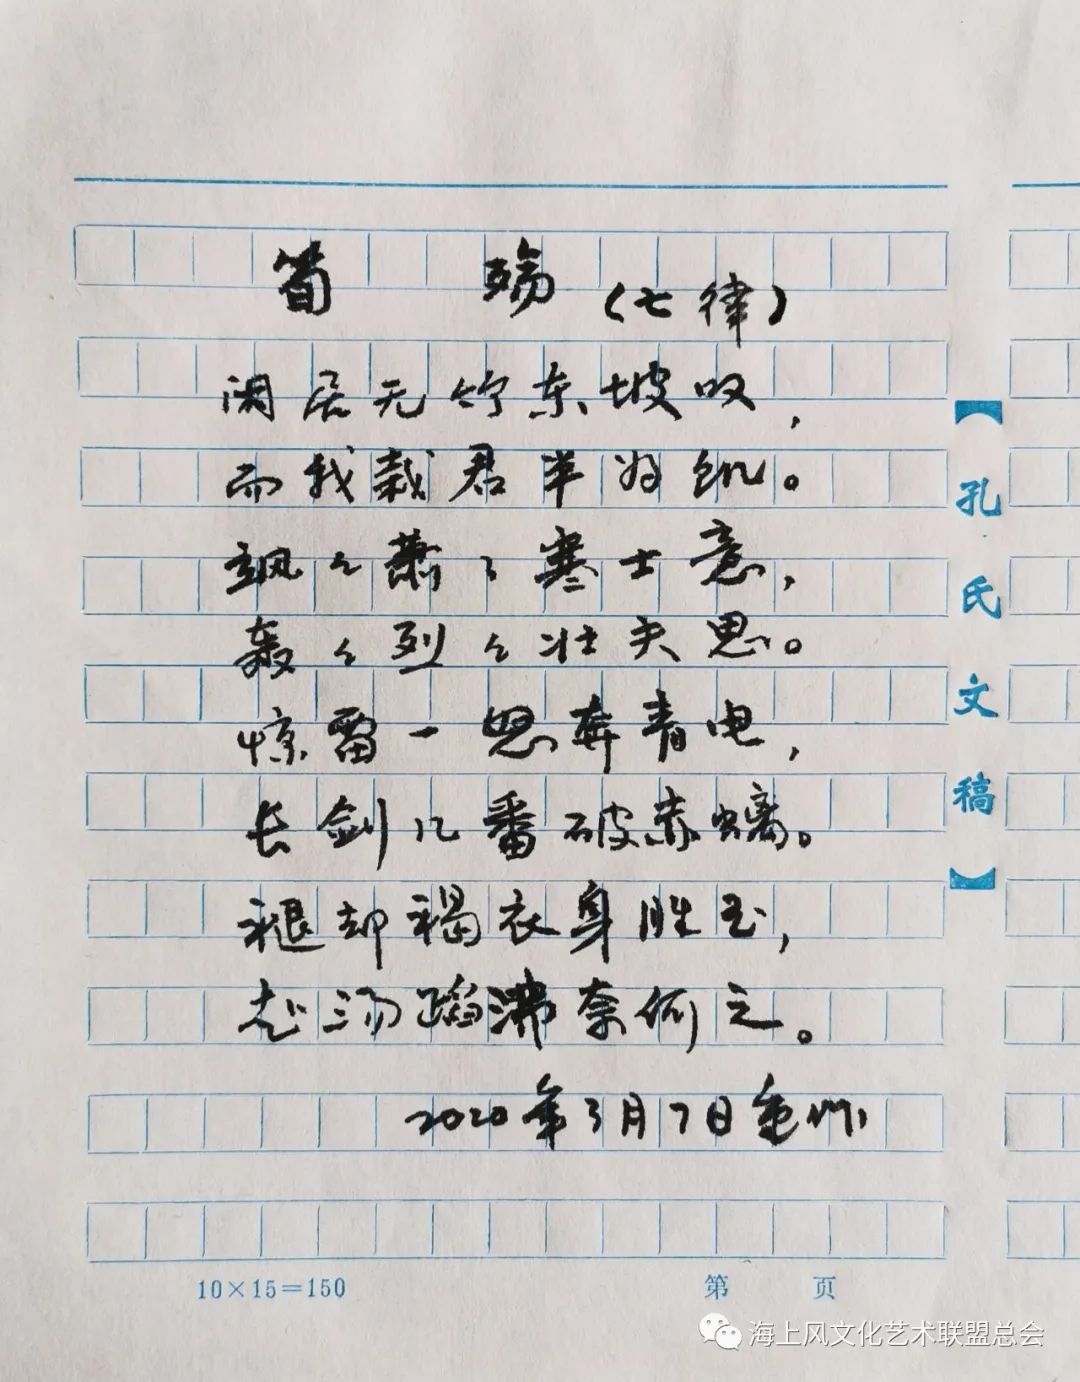 笋殇（七律）
闲居无竹东坡叹，
而我栽君半为饥。
飒々萧々寒士意，
轰々烈々壮夫思。
惊雷一怒奔青电，
长剑几番破赤螭。
褪却褐衣身胜玉，
赴汤蹈沸奈何之。
2020年3月7日
10×15=150
第 页
【孔氏文稿】
海上风文化艺术联盟总会